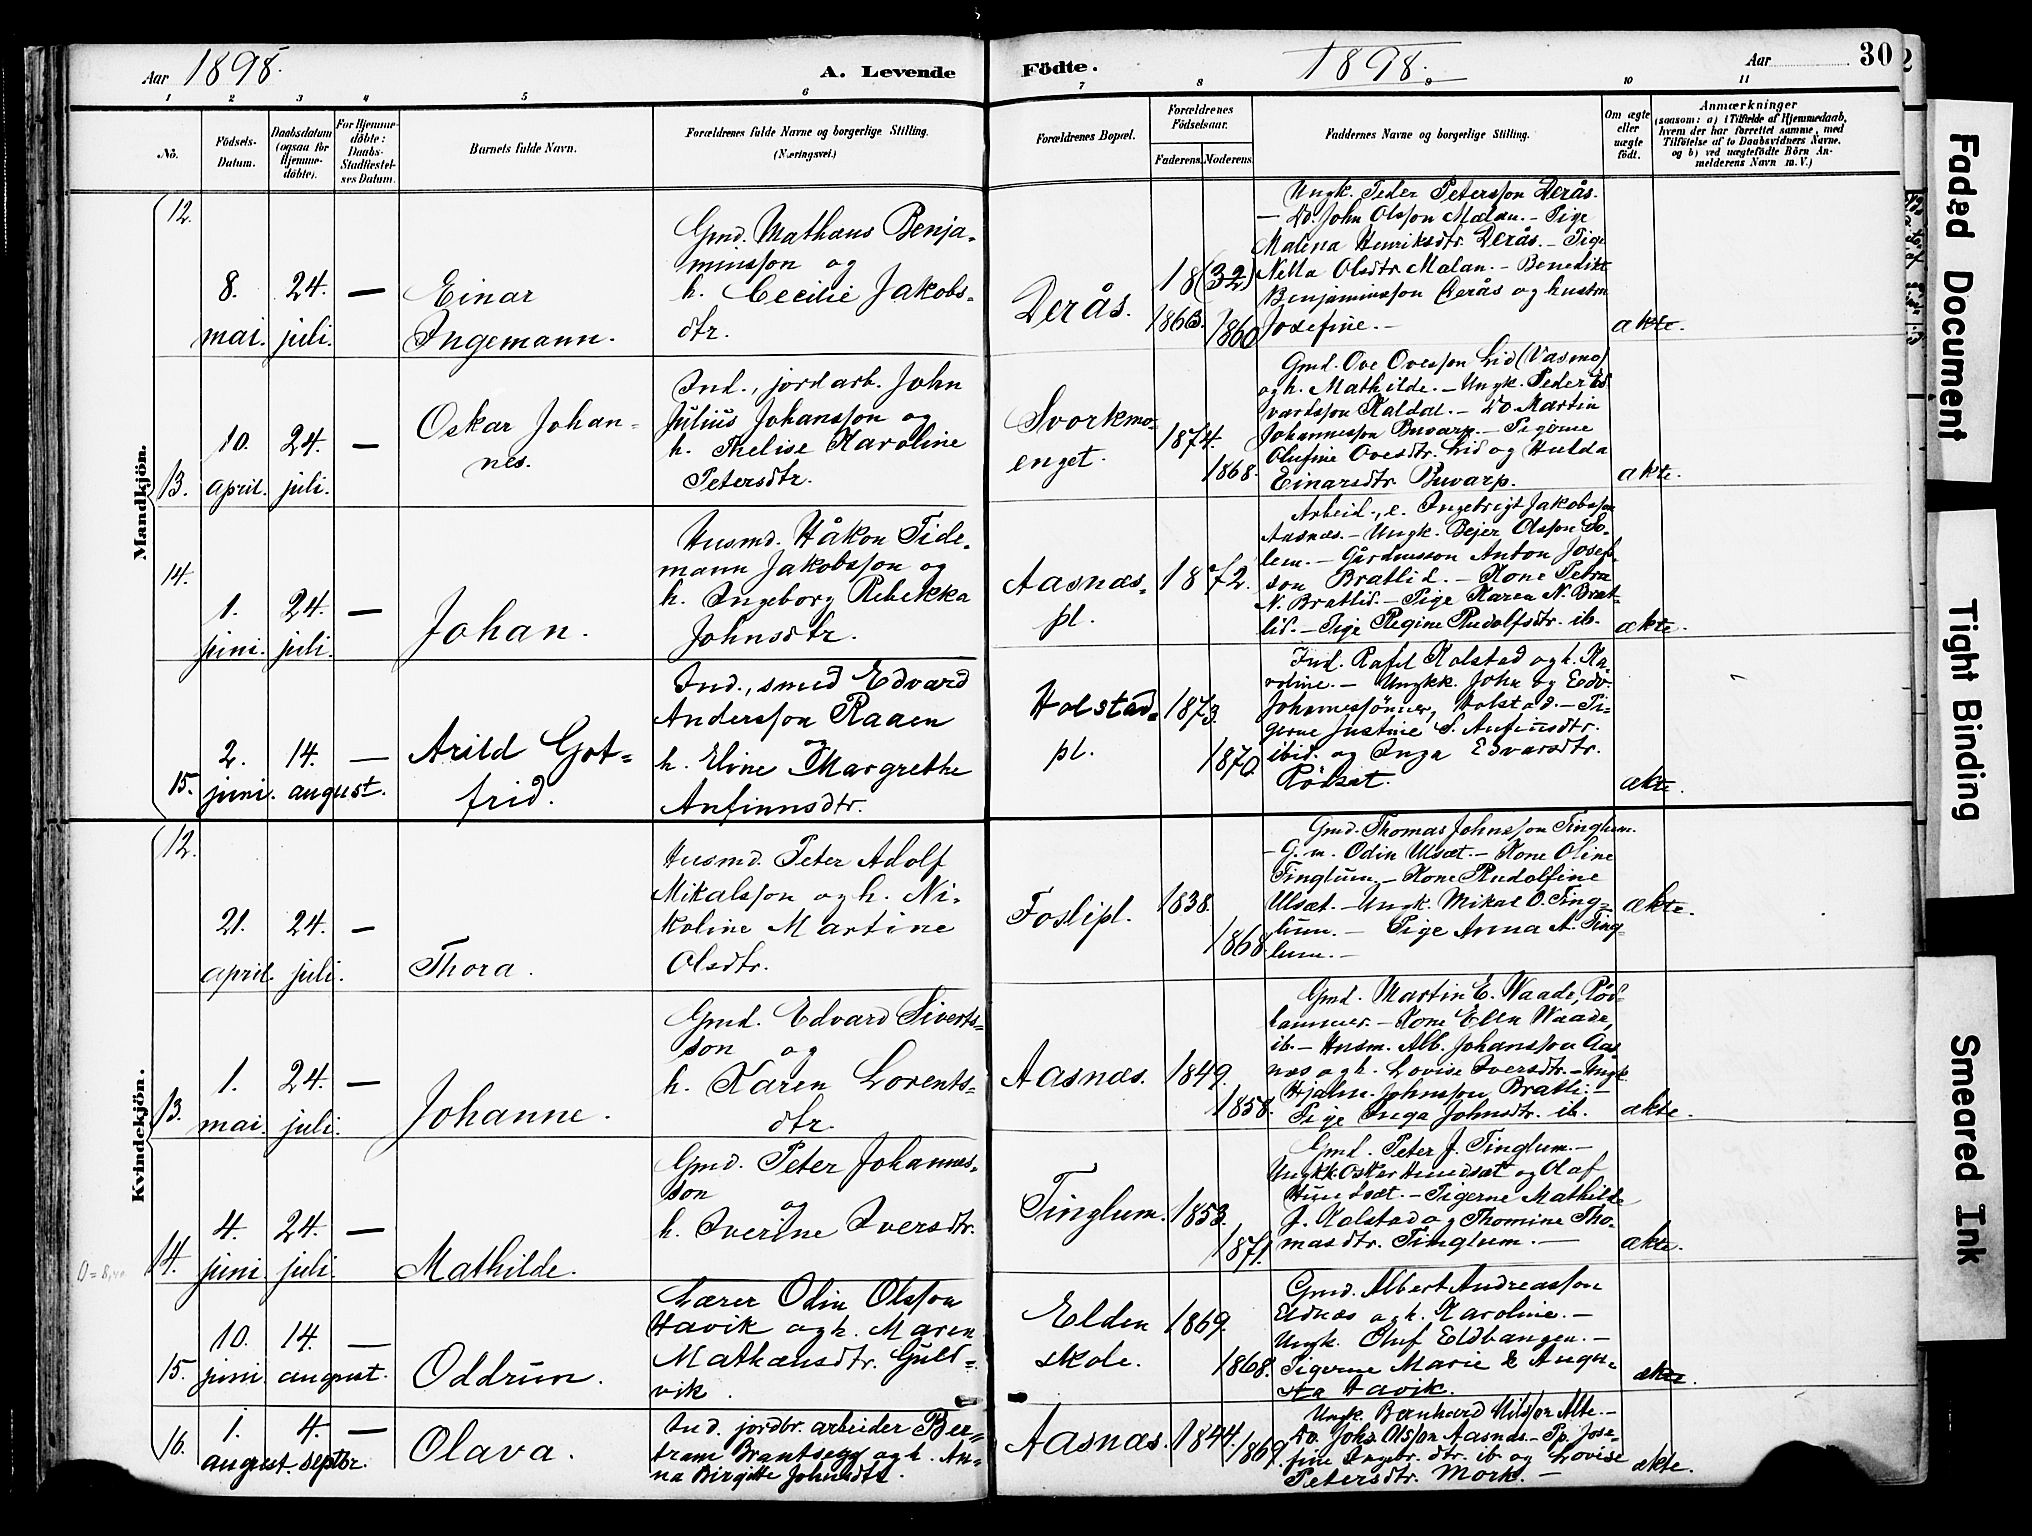 Aar 1898.
A. Levende
Födte.
1898.
Aar
30
1 2 3 4 5 6 7 8 9 10 11
No.
Födsels-
Datum.
Daabsdatum
(ogsaa for
Hjemme-
döbte).
For Hjemme-
döbte:
Daabs-
Stadfæstel-
ses Datum.
Barnets fulde Navn.
Forældrenes fulde Navne og borgerlige Stilling.
(Næringsvei.)
Forældrenes Bopæl.
Forældrenes
Födselsaar.
Faderens.
Moderens.
Faddernes Navne og borgerlige Stilling.
Om ægte
eller
uægte
födt.
Anmærkninger
(saasom: a) i Tilfælde af Hjemmedaab,
hvem der har forrettet samme, med
Tilföielse af to Daabsvidners Navne.
og b) ved uægtefödte Börn An-
melderens Navn m. V.)
Mandkjön.
12.
8.
mai.
24.
juli.
—
Einar
Ingemann.
Gmd. Mathæus Benja-
minsson og
h. Cecilie Jakobs-
dtr.
Derås.
18(32)
1863.
1860
Ungk. Peder Petersson Derås.
— Do. John Olsson Malan. — Pige
Malena Henriksdtr. Derås. — Pige
Nella Olsdtr. Malan. — Benedikt
Benjaminsson Derås og hustru
Josefine. —
ækte.
13.
10.
april.
24.
juli.
—
Oskar Johan-
nes.
Ind., jordarb. John
Julius Johansson og
h. Thelise Karoline
Petersdtr.
Svorkmo-
enget.
1874.
1868.
Gmd. Ove Ovesson Lid (Vasmo)
og h. Mathilde. — Ungk. Peder Ed
vardsson Kaldal. — Do. Martin
Johannesson Buvarp. — Pigerne
Olufine Ovesdtr. Lid og Hulda
Einarsdtr. Buvarp.
ækte.
14.
1.
juni.
24.
juli.
—
Johan.
Husmd. Håkon Tide-
mann Jakobsson og
h. Ingeborg Rebekka
Johnsdtr.
Aasnæs-
pl.
1872.
Arbeid., e. Ingebrigt Jakobsson
Aasnæs. — Ungk. Pejer Olsson So-
lem. — Gårdmsson Anton Josef-
son Bratlid. — Kone Petra
N. Bratlid. — Pige Karen N. Brat-
lid. — Pige Regine Rudolfsdtr. ib.
ækte.
15.
2.
juni.
14.
august.
—
Arild Got-
frid.
Ind., smed Edvard
Andersson Raaen
og
h. Eline Margrethe
Anfinnsdtr.
Holstad-
pl.
1873.
1870.
Ind. Rafel Kolstad og h. Ka-
roline. — Ungkk. John og Edv.
Johannessönner, Holstad. — Pi-
gerne Justine S. Anfinsdtr.
ibid. og Inga Edvarsdtr.
Rödsæt.
ækte.
Kvindekjön.
12.
21.
april.
24.
juli.
—
Thora.
Husmd. Peter Adolf
Mikalsson og h. Ni-
koline Martine
Olsdtr.
Foslipl.
1838.
1868.
Gmd. Thomas Johnsson Tinglum.
— G. m. Odin Ulsæt. — Kone Oline
Tinglum. — Kone Rudolfine
Ulsæt. — Ungk. Mikal O. Ting-
lum. — Pige Anna A. Ting-
lum. —
ækte.
13.
1.
mai.
24.
juli.
—
Johanne.
Gmd. Edvard Siverts-
son og
h. Karen Lorents-
dtr.
Aasnæs.
1849.
1858.
Gmd. Martin E. Waade, Röd-
hammer. — Kone Ellen Waade,
ib. — Husm. Alb. Johansson Aas
næs og h. Lovise Iversdtr. — Ungk
Hjalm. Johnsson Bratli. —
Pige Inga Johnsdtr. ib.
ækte.
14.
4.
juni
24.
juli.
—
Mathilde.
Gmd. Peter Johannes-
son
og
h. Iverine Iversdtr.
Tinglum.
1853.
1871.
Gmd. Peter J. Tinglum. —
Ungkk. Oskar Hundsæt og Olaf
Hundsæt. — Pigerne Mathilde
J. Kolstad og Thomine Tho-
masdtr. Tinglum. —
ækte.
15.
10.
juni
14.
august.
—
Oddrun.
Lærer Odin Olsson
Havik og h. Maren
Mathæusdtr. Guld-
vik.
Elden
skole.
1869.
1868.
Gmd. Albert Andreasson
Eldnæs og h. Karoline. —
Ungk. Oluf Eldbangen. —
Pigerne Marie & Augu-
sta Havik.
ækte.
16.
1.
august.
4.
septbr.
—
Olava.
Ind. jordbr. arbeider Ber-
tram Brantsegg og h. An-
na Birgitte Johnsdtr.
Aasnæs.
1844.
1869.
Ungk. Bernhard Nilsson Alte. —
Do. Johs Olsson Aasnæs. — Pp. Jose-
fine Ingebr. dtr. ib. og Lovise
Petersdtr. Mork. —
ækte.
Faded Document
Tight Binding
Smeared Ink